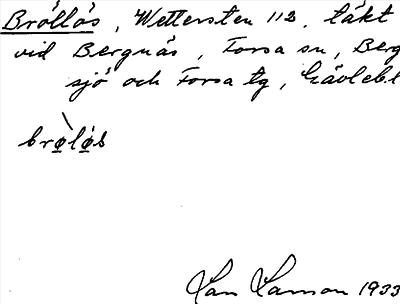 Bröllös, Wettersten 113, täkt
vid Bergnäs, Forsa sn, Berg
sjö och Forsa tg, Gävlebl
brølø̣s
Jan Larsson 1933